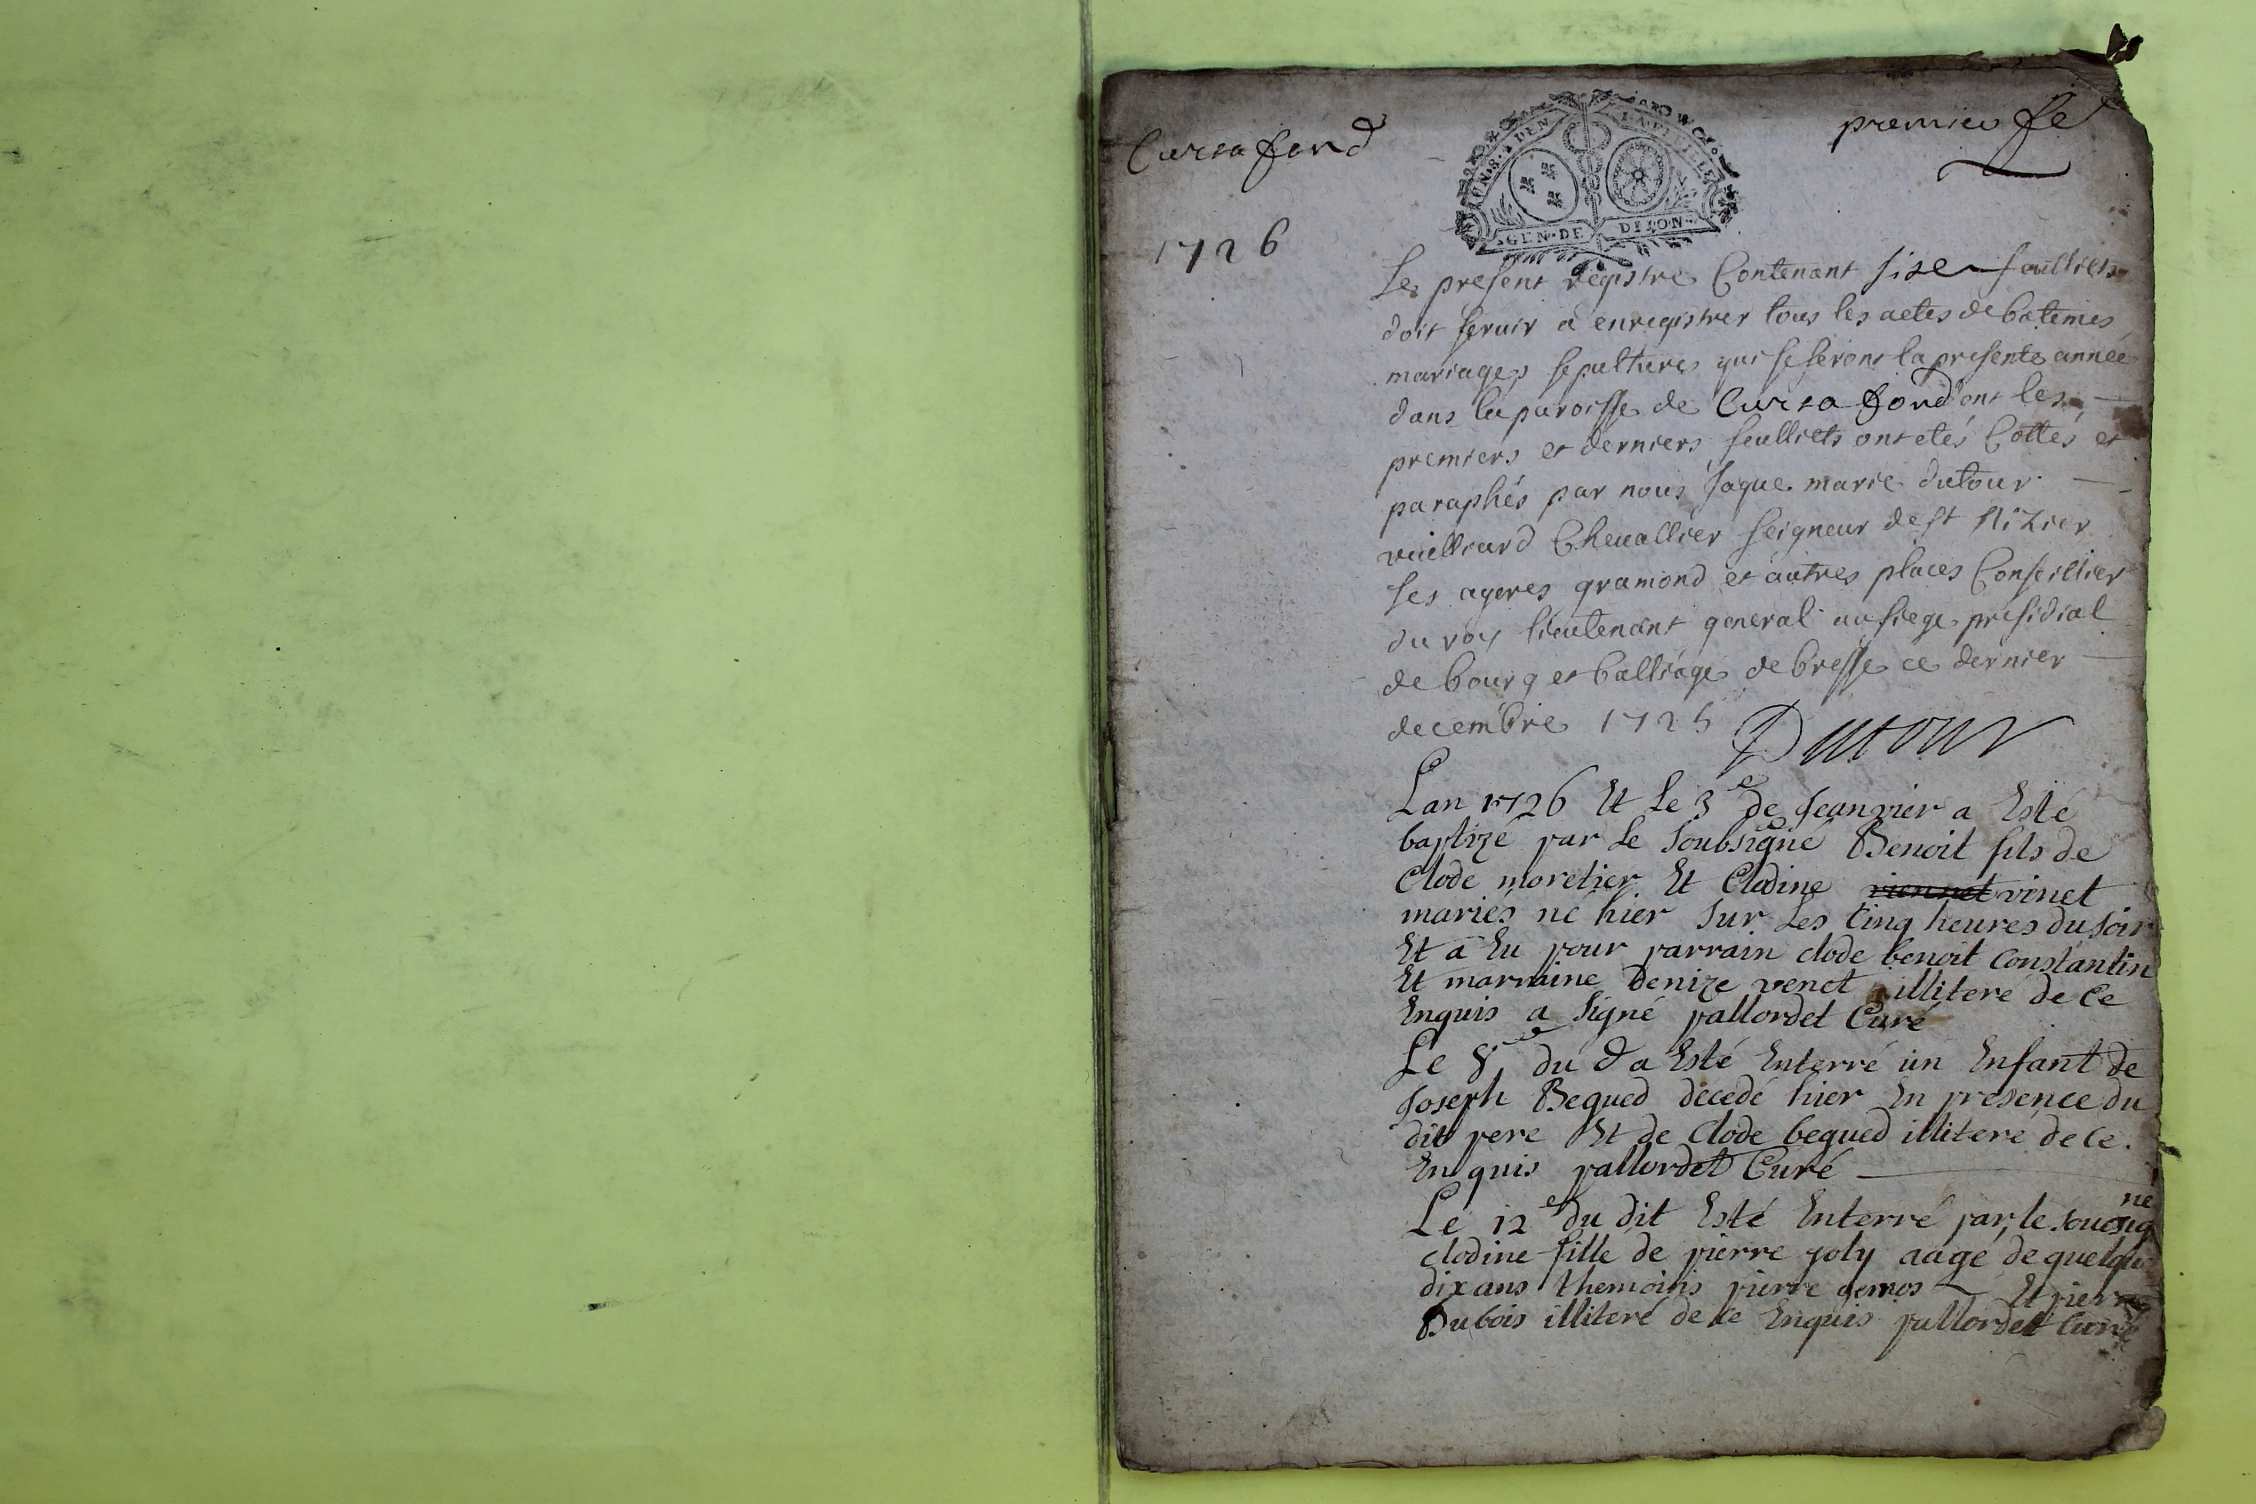 Curtafond
premier fe
GEN·DE DIJON
1726
Le present registre Contenant sise feulliets
doit servir a enregistrer tous les actes de batemes
mariages sepultures qui se feront la presente année
dans la paroisse de Curtafond dont les
premiers et derniers feulliets ont etés Cottés et
paraphés par nous Jaque marie dutour
vuilliard Chevallier seigneur de st Nizier
les ageres gramond et autres places Conseillier
du roy lieutenant general au siege presidial
de bourg et balliage de bresse ce dernier
decembre 1725 Dutour
Lan 1726 Et Le 3e de Jeanvier a Esté
baptizé par Le Soubsigné Benoit fils de
Clode moretier Et Clodine viennet vinet
mariés né hier Sur Les Cinq heures du soir
Et a Eu pour parrain clode benoit Constantin
Et marraine Denize venet illiteré de Ce
Enquis a Signé pallordet Curé
Le 8e du d a Esté Enterré un Enfant de
Joseph Bequed decedé hier En presence du
dit pere Et de Clode bequed illiteré de Ce
Enquis pallordet Curé
Le 12e du dit Esté Enterré par le sousig
né
clodine fille de pierre joly aagé de quelque
dix ans themoins pierre Et pierre
Dubois illiteré de ce Enquis pallordet Curé